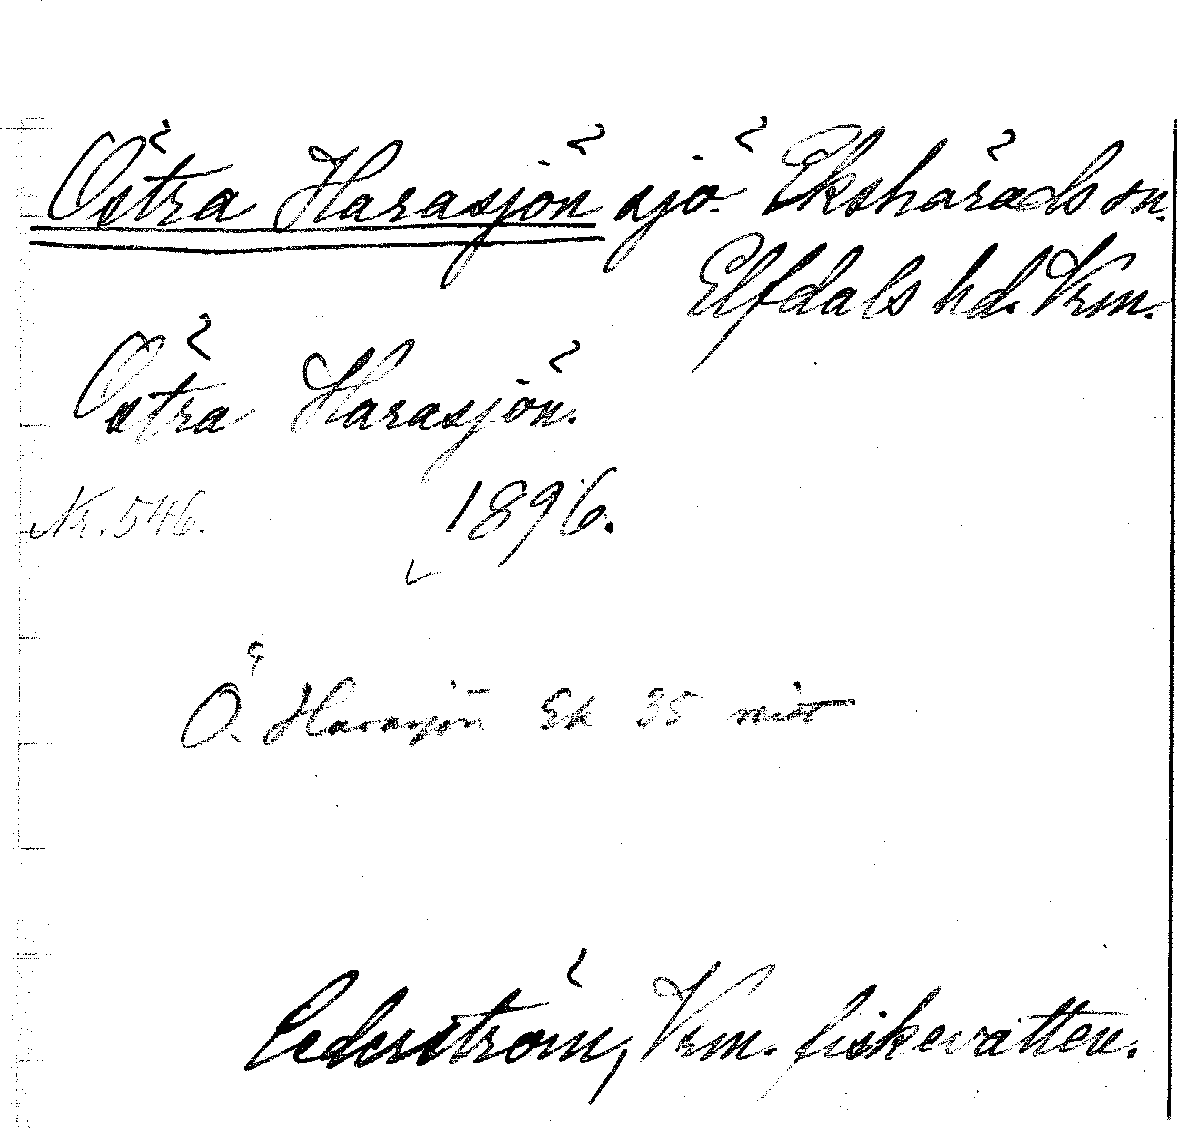 Östra Harasjön sjö. Ekshärads sn.
Elfdals hd. Vrm.
Östra Harasjön.
Nr. 546. 1896.
Ö. Harasjön Ek 35
Cederström, Vrm. fiskevatten.